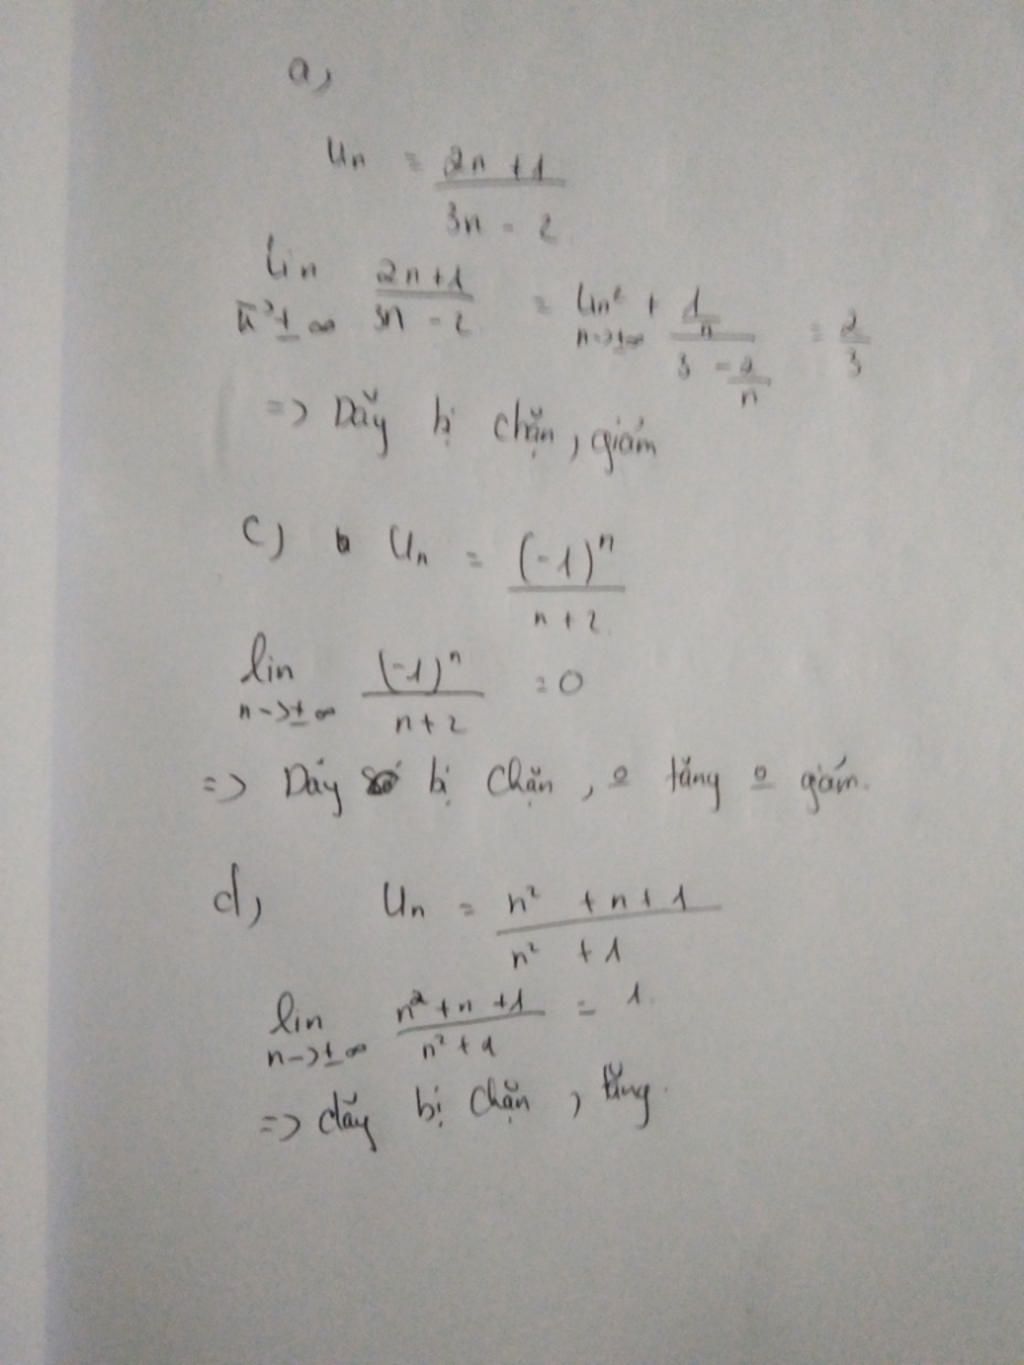 a,
Un = (2n + 1)/(3n - 2)
lin n→±∞ (2n+1)/(3n - 2) = lin n→±∞ (2 + 1/n)/(3 - 2/n) = 2/3
=> Dãy bị chặn, giảm
c) Un = (-1)^n/(n + 2)
lin n→±∞ (-1)^n/(n+2) = 0
=> Dãy số bị chặn, o tăng o giảm.
d, Un = (n² + n + 1)/(n² + 1)
lin n→±∞ (n²+n+1)/(n²+1) = 1.
=> dãy bị chặn, tăng.